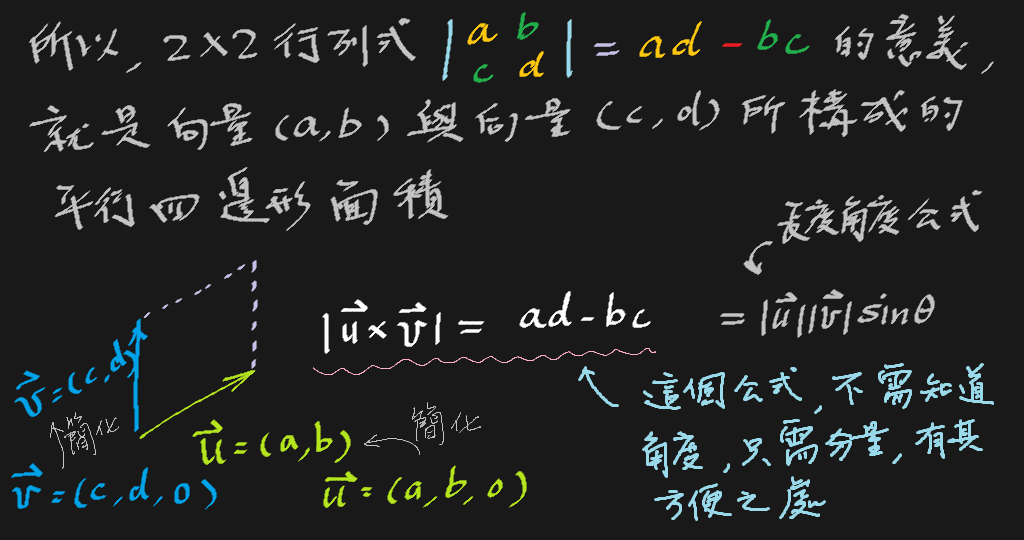 所以, 2×2 行列式 |a b c d| = ad - bc 的意義,
就是向量 (a,b) 與向量 (c,d) 所構成的
平行四邊形面積
長度角度公式
|u⃗×v⃗| = ad-bc = |u⃗||v⃗|sinθ
v⃗=(c,d)
簡化
v⃗=(c,d,0)
u⃗=(a,b)
簡化
u⃗=(a,b,0)
這個公式, 不需知道
角度, 只需分量, 有其
方便之處